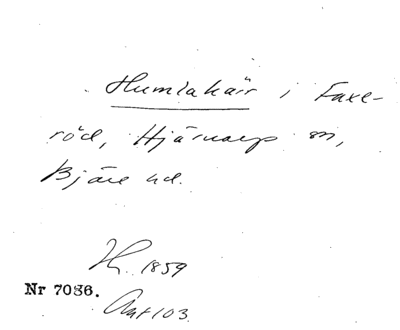 Humlakärr i Faxe-
röd, Hjärnarp sn,
Bjäre hd.
H. 1859
Nr 7086.
Ant 103